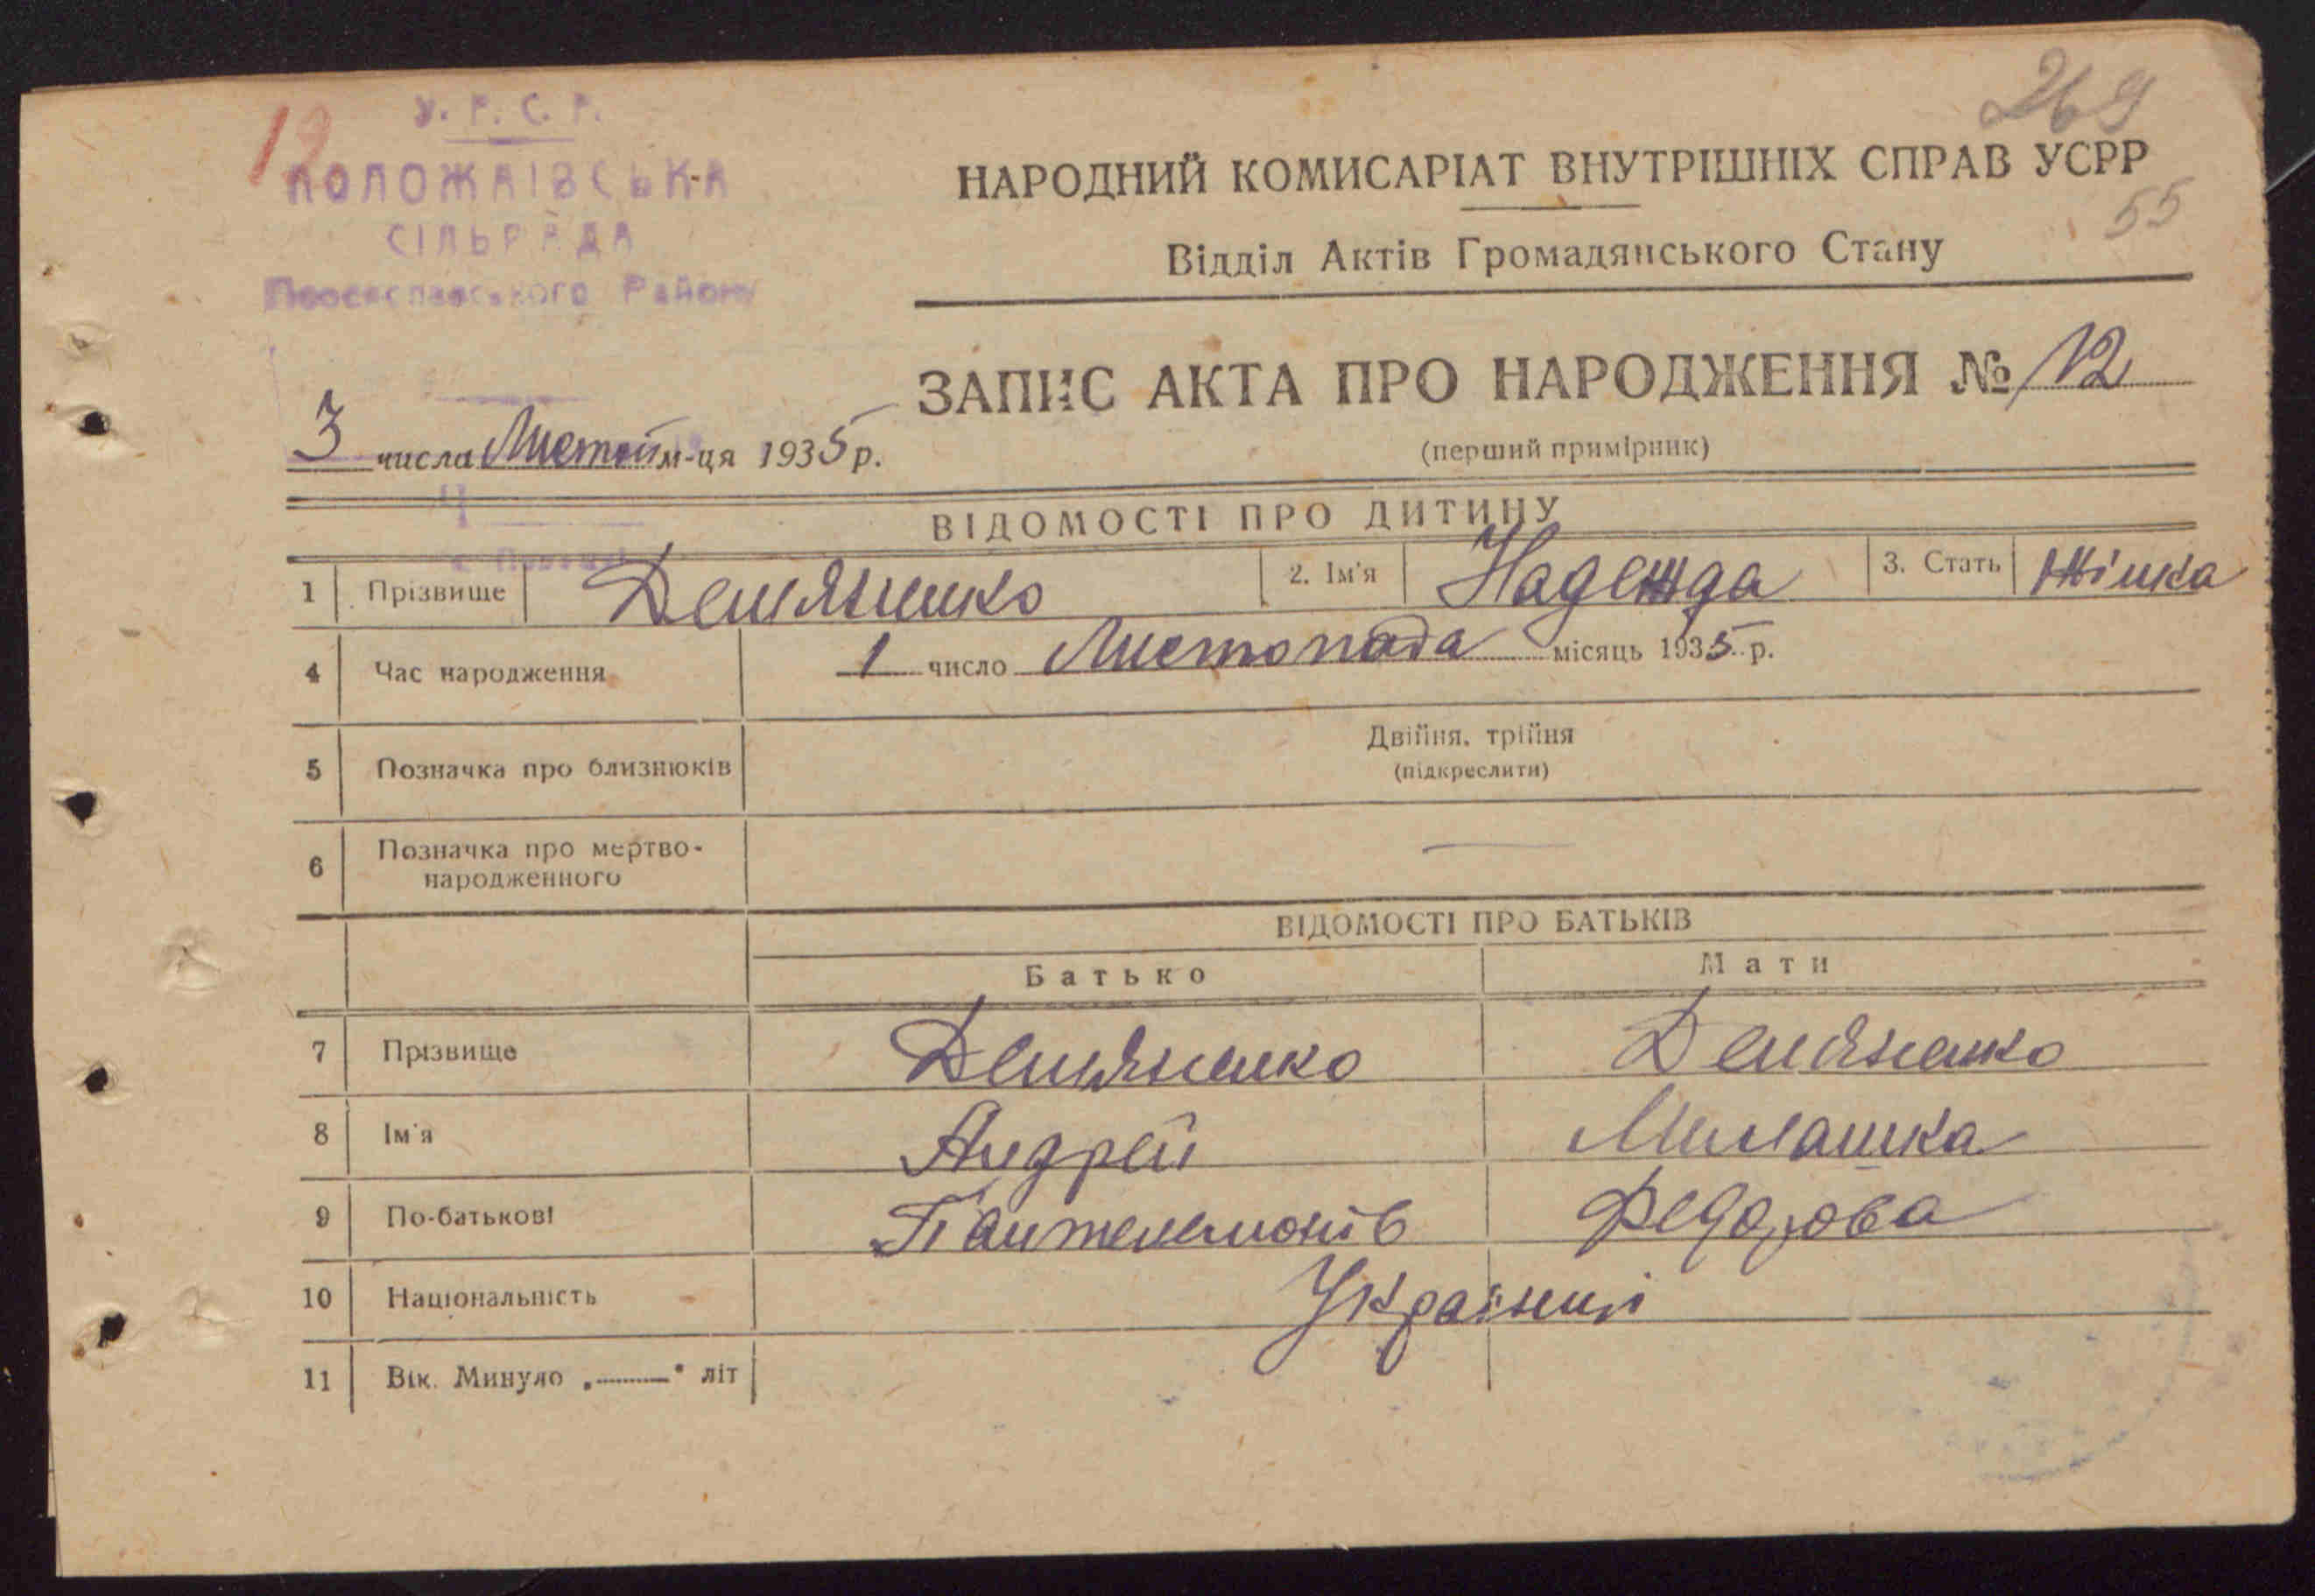 269
12
У. Р. С. Р.
ПОЛОЖАІВСЬКА
СІЛЬРАДА
Переяславського Району
НАРОДНИЙ КОМИСАРІАТ ВНУТРІШНІХ СПРАВ УСРР
55
Відділ Актів Громадянського Стану
ЗАПИС АКТА ПРО НАРОДЖЕННЯ № 12
(перший примірник)
3 числа Листоп м-ця 1935 р.
ВІДОМОСТІ ПРО ДИТИНУ
1 Прізвище Демяненко 2. Ім'я Надежда 3. Стать Жінка
4 Час народження 1 число Листопада місяць 1935 р.
5 Позначка про близнюків Двійня, трійня
(підкреслити)
6 Позначка про мертво-
народженного —
ВІДОМОСТІ ПРО БАТЬКІВ
Батько Мати
7 Прізвище Демяненко Демяненко
8 Ім'я Андрей Милашка
9 По-батькові Пантелемонів Федорова
10 Національність Україниі
11 Вік. Минуло „ — " літ